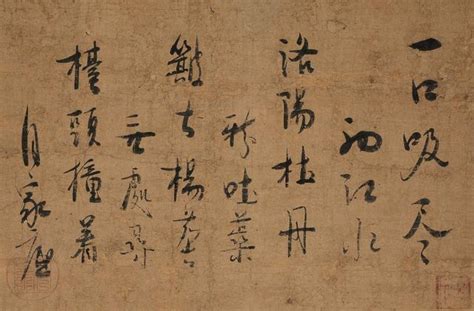 一口吸尽
西江水
洛陽牡丹
新吐蘂
簸土揚塵
無處尋
擡頭撞着
自家底